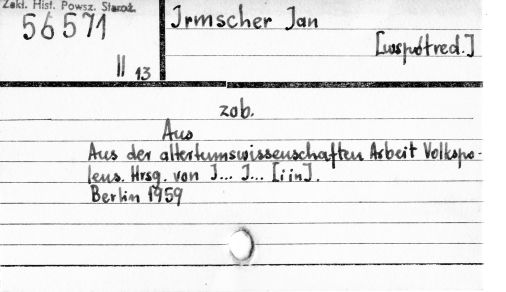 Zakł. Hist. Powsz. Staroż.
56571
II 13
Irmscher Jan
[współred.]
zob.
Aus
Aus der altertumswissenschaften Arbeit Volkspo-
lens. Hrsg. von J... J... [i in].
Berlin 1959